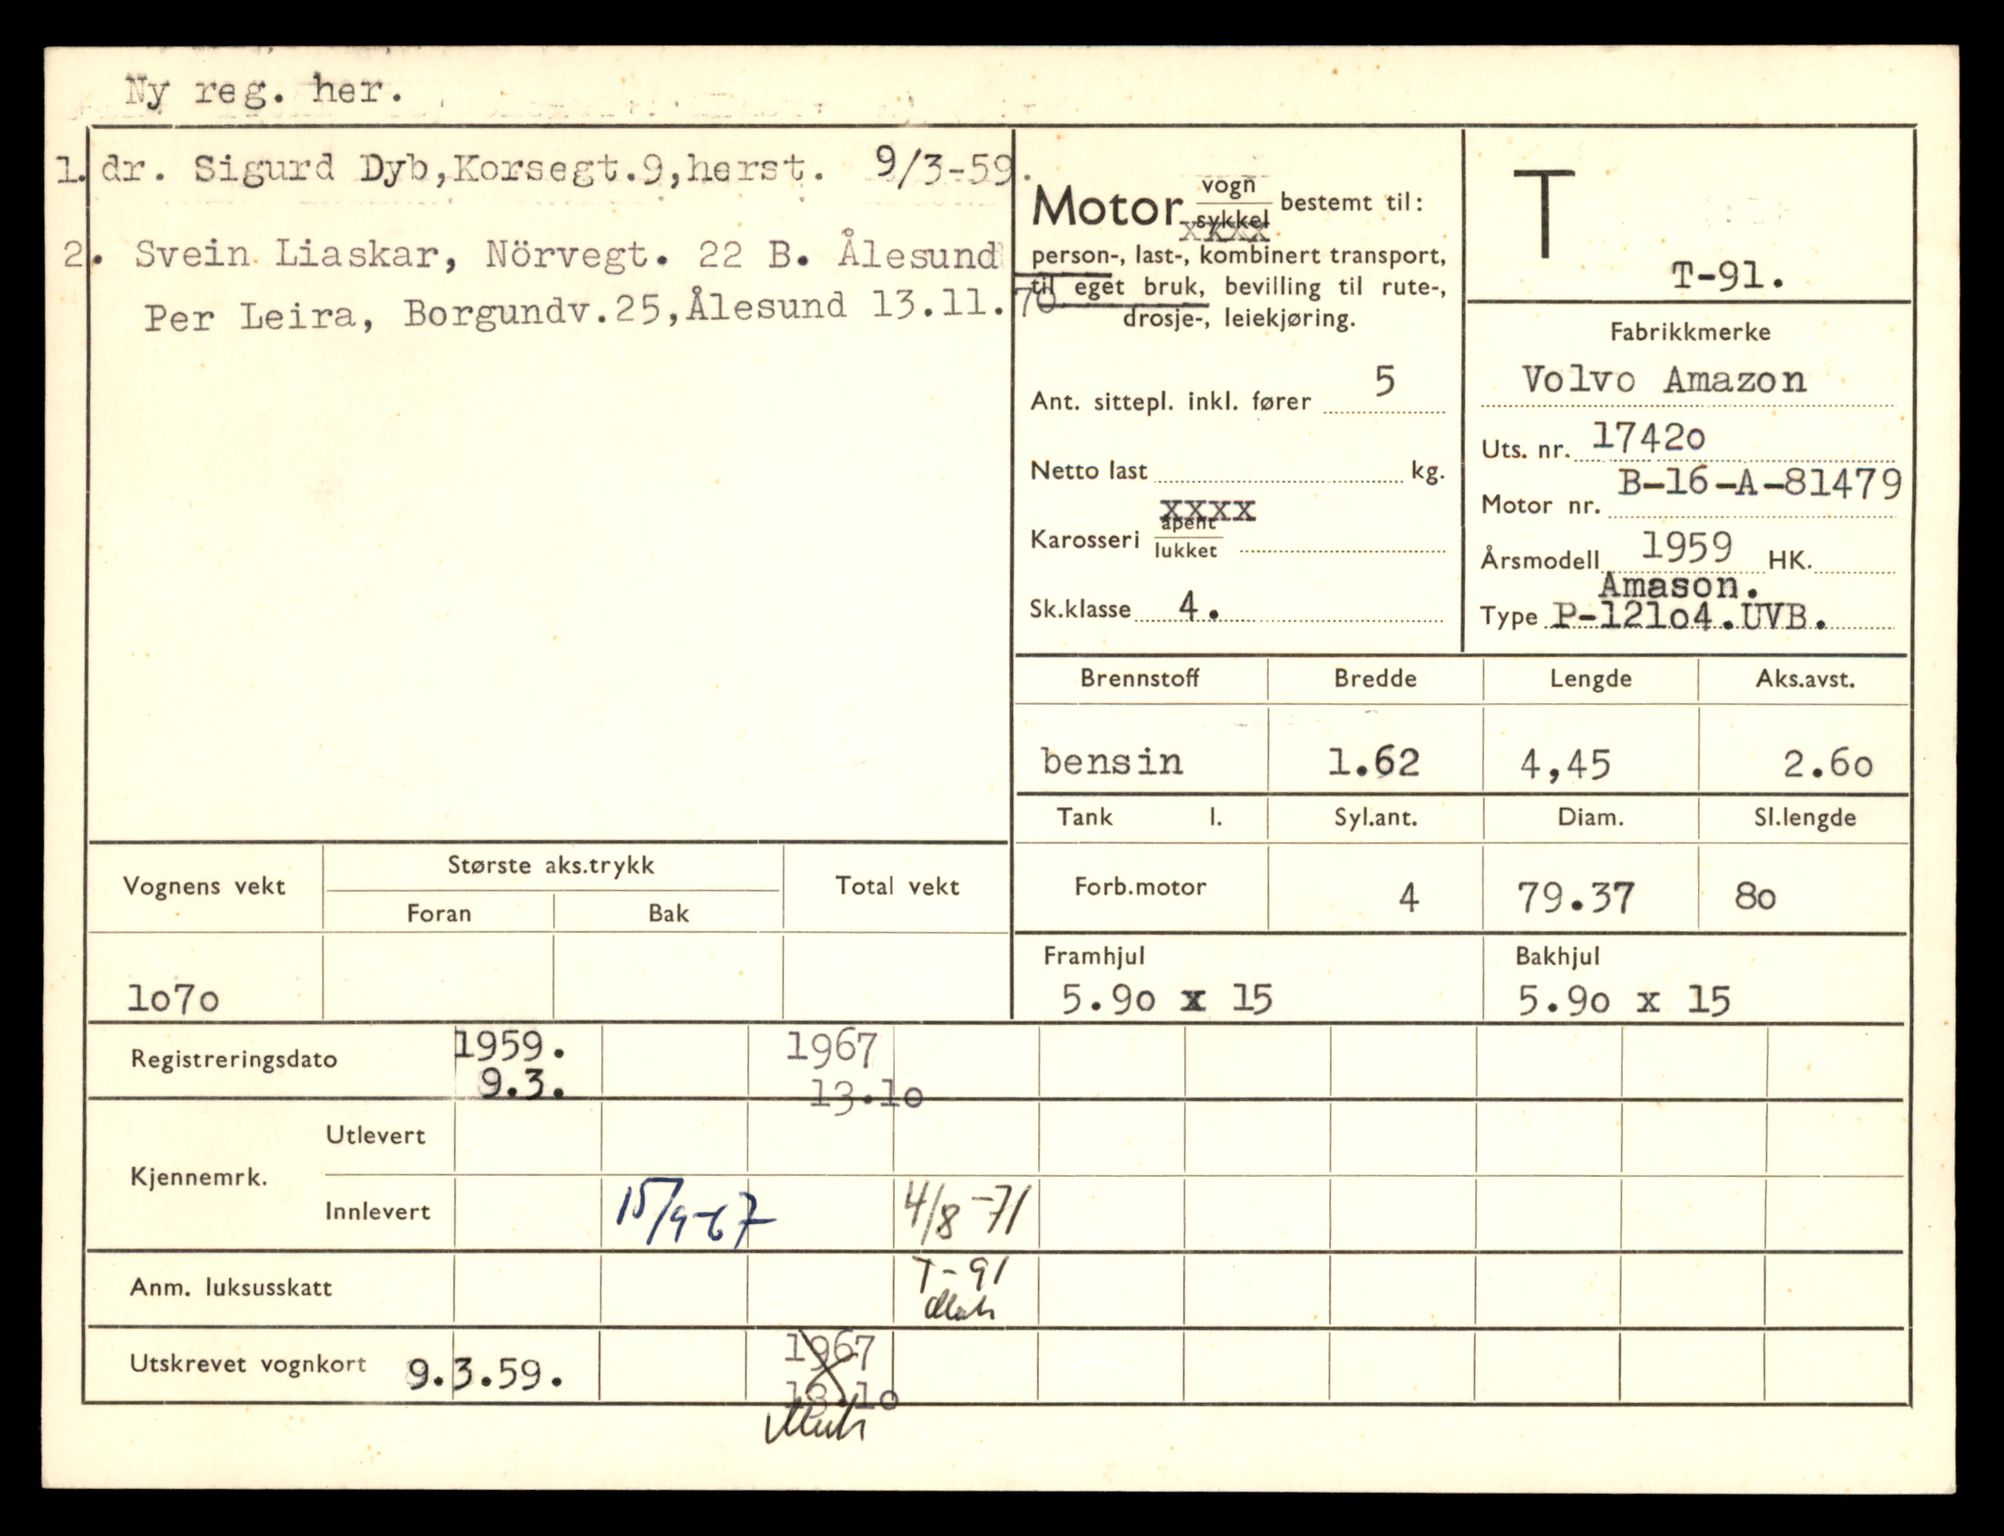 Ny reg. her.
1. dr. Sigurd Dyb,Korsegt.9,herst. 9/3-59.
2. Svein Liaskar, Nörvegt. 22 B. Ålesund
Per Leira, Borgundv.25,Ålesund 13.11.70
Motor vogn bestemt til:
sykkel
xxxx
person-, last-, kombinert transport,
til eget bruk, bevilling til rute-,
drosje-, leiekjøring.
Ant. sittepl. inkl. fører 5
Netto last kg.
xxxx
Karosseri åpent
lukket
Sk.klasse 4.
T
T-91.
Fabrikkmerke
Volvo Amazon
Uts. nr. 1742o
Motor nr. B-16-A-81479
Årsmodell 1959 HK.
Amason.
Type P-121o4.UVB.
Brennstoff Bredde Lengde Aks.avst.
bensin 1.62 4,45 2.6o
Tank l. Syl.ant. Diam. Sl.lengde
Forb.motor 4 79.37 8o
Framhjul Bakhjul
5.9o x 15 5.9o x 15
Vognens vekt Største aks.trykk Total vekt
Foran Bak
1o7o
Registreringsdato 1959. 1967
9.3. 13.1o
Kjennemrk. Utlevert
Innlevert 15/9-67 4/8-71
Anm. luksusskatt T-91
Utskrevet vognkort 9.3.59. 1967
13.1o